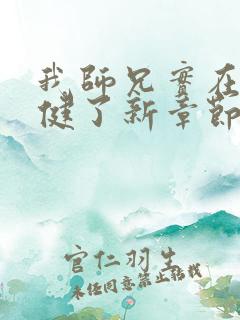 我師兄實在
健了新章節
官仁羽生
未经同意禁止转载